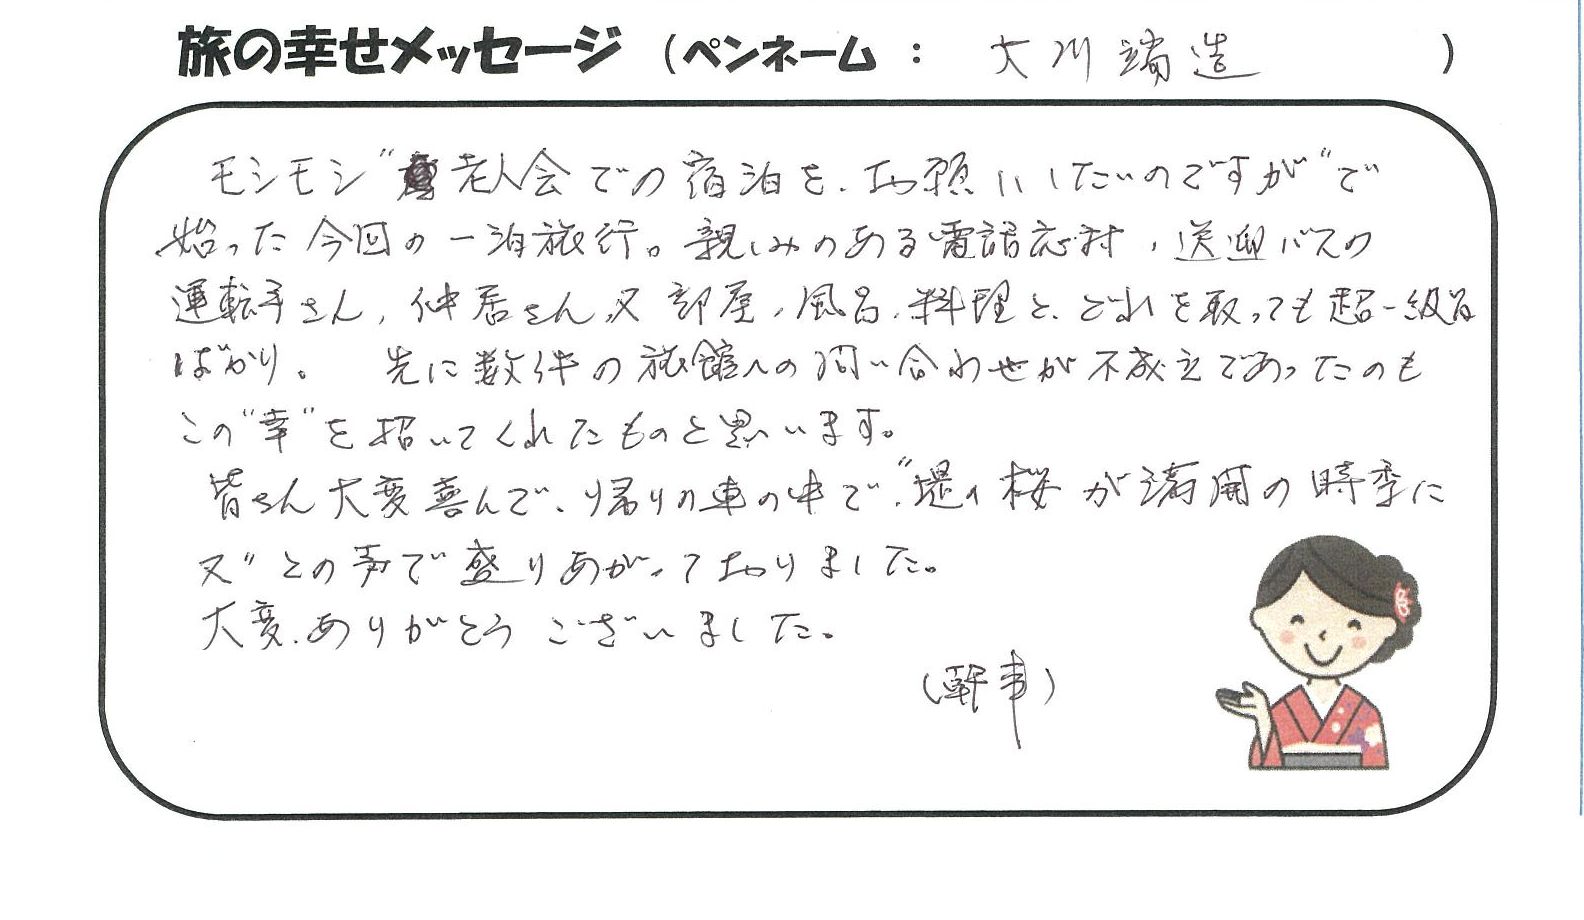 旅の幸せメッセージ（ペンネーム： 大川端造 ）
モシモシ〝老人会での宿泊を、お願いしたいのですが〟で
始った今回の一泊旅行。親しみのある電話応対、送迎バスの
運転手さん、仲居さん、又部屋、風呂、料理と、どれを取っても超一級品
ばかり。 先に数件の旅館への問い合わせが不成立であったのも
この〝幸〟を招いてくれたものと思います。
皆さん大変喜んで、帰りの車の中で、〝堤の桜が満開の時季に
又〟との声で盛りあがっておりました。
大変、ありがとうございました。
（幹事）